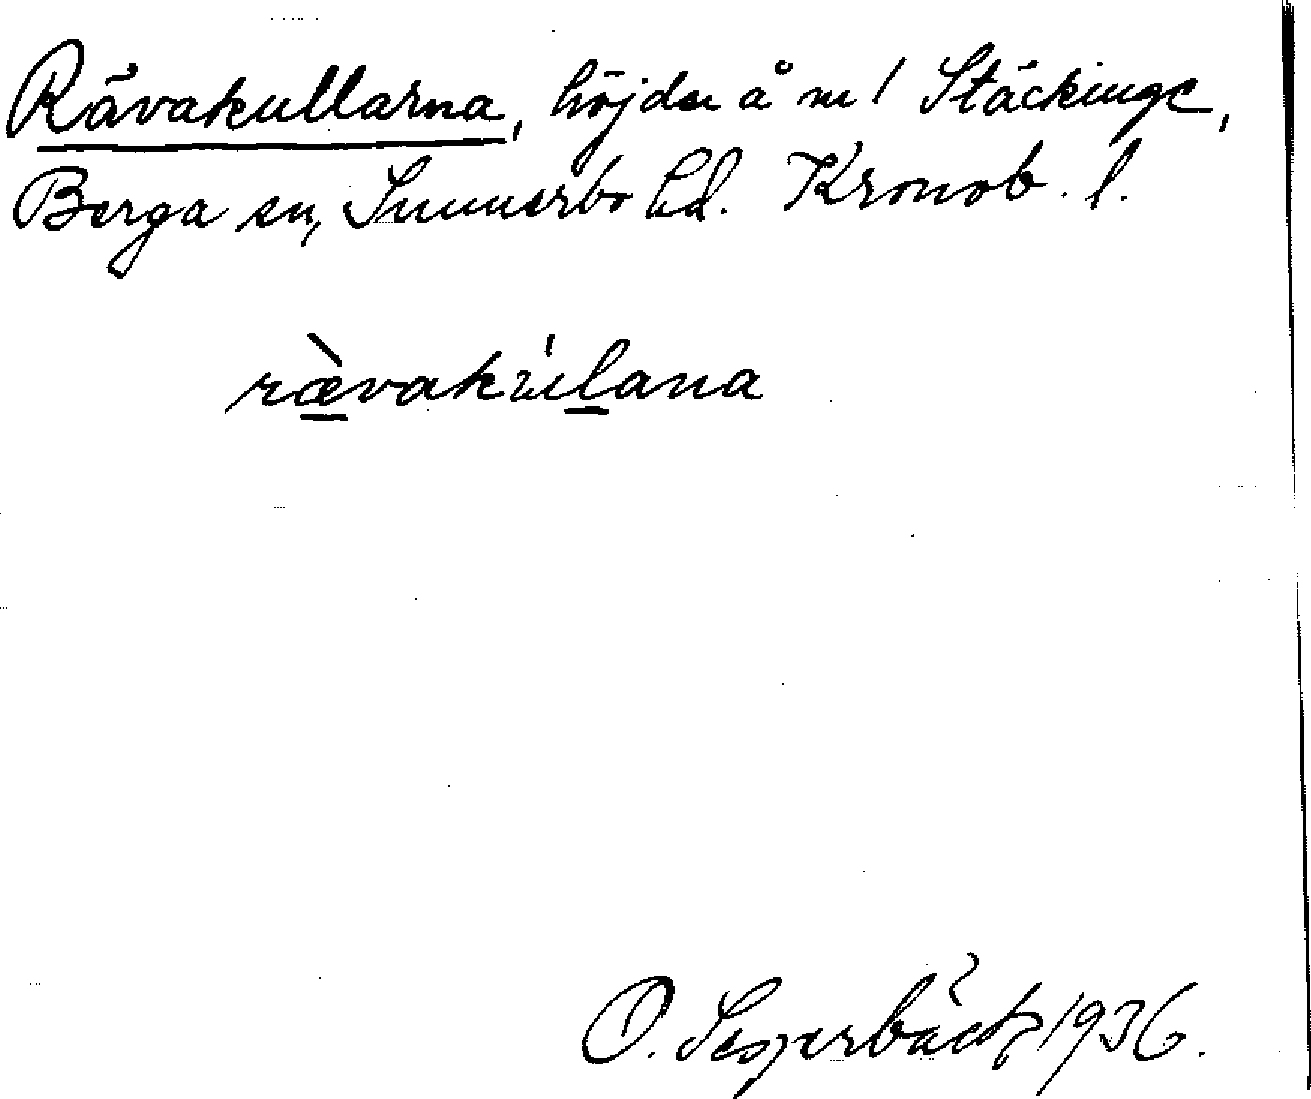 Rävakullarna, höjder å nr 1 Stäckinge,
Berga sn, Sunnerbo hd. Kronob. l.
ræ̀vakúlana
O. Segerbäck 1936.